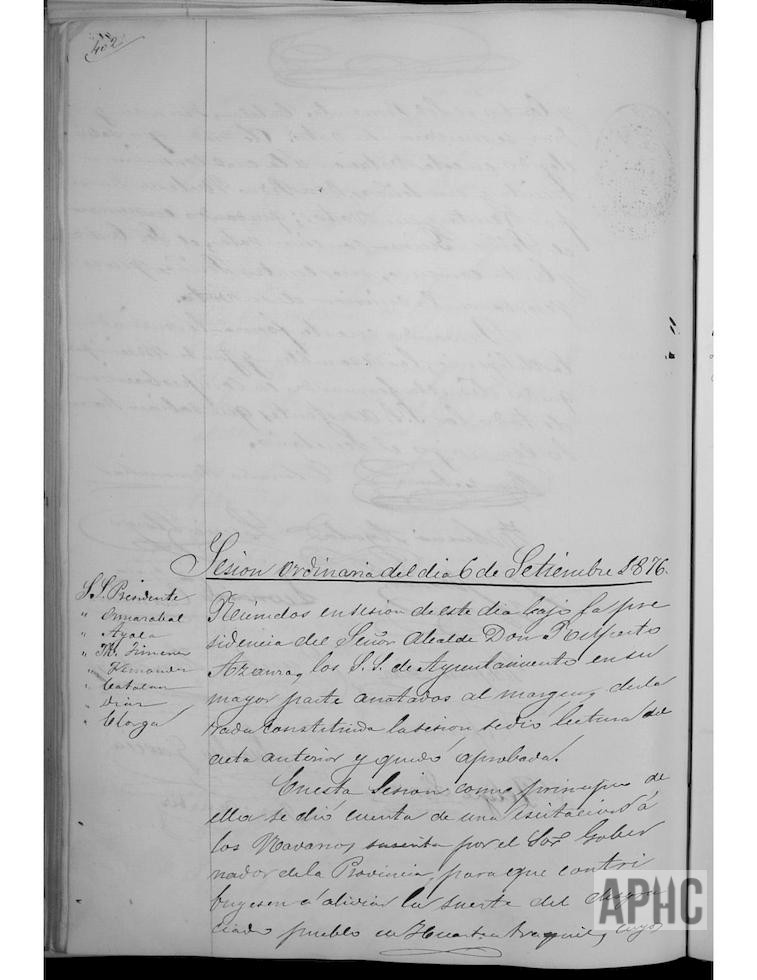 402
Sesion ordinaria del dia 6 de Setiembre 1876.
S.S. Presidente
" Amarabal
" Ayala
" Mz. Jimenez
" Hernandez
" Catalan
" Diaz
" Clorga
Reunidos en sesion de este dia bajo la pre
sidencia del Señor Alcalde Don Ruperto
Azanza, los S.S. de Ayuntamiento en su
mayor parte anotados al margen, decla
rada constituida la sesion, se dió lectura del
acta anterior y quedó aprobada.
En esta Sesion como principio de
ella se dió cuenta de una escitacion á
los Navarros suscrita por el Sor. Gober
nador de la Provincia, para que contri
buyesen á aliviar la suerte del desgra
ciado pueblo de Huarte Araquil, cuyo
APHC